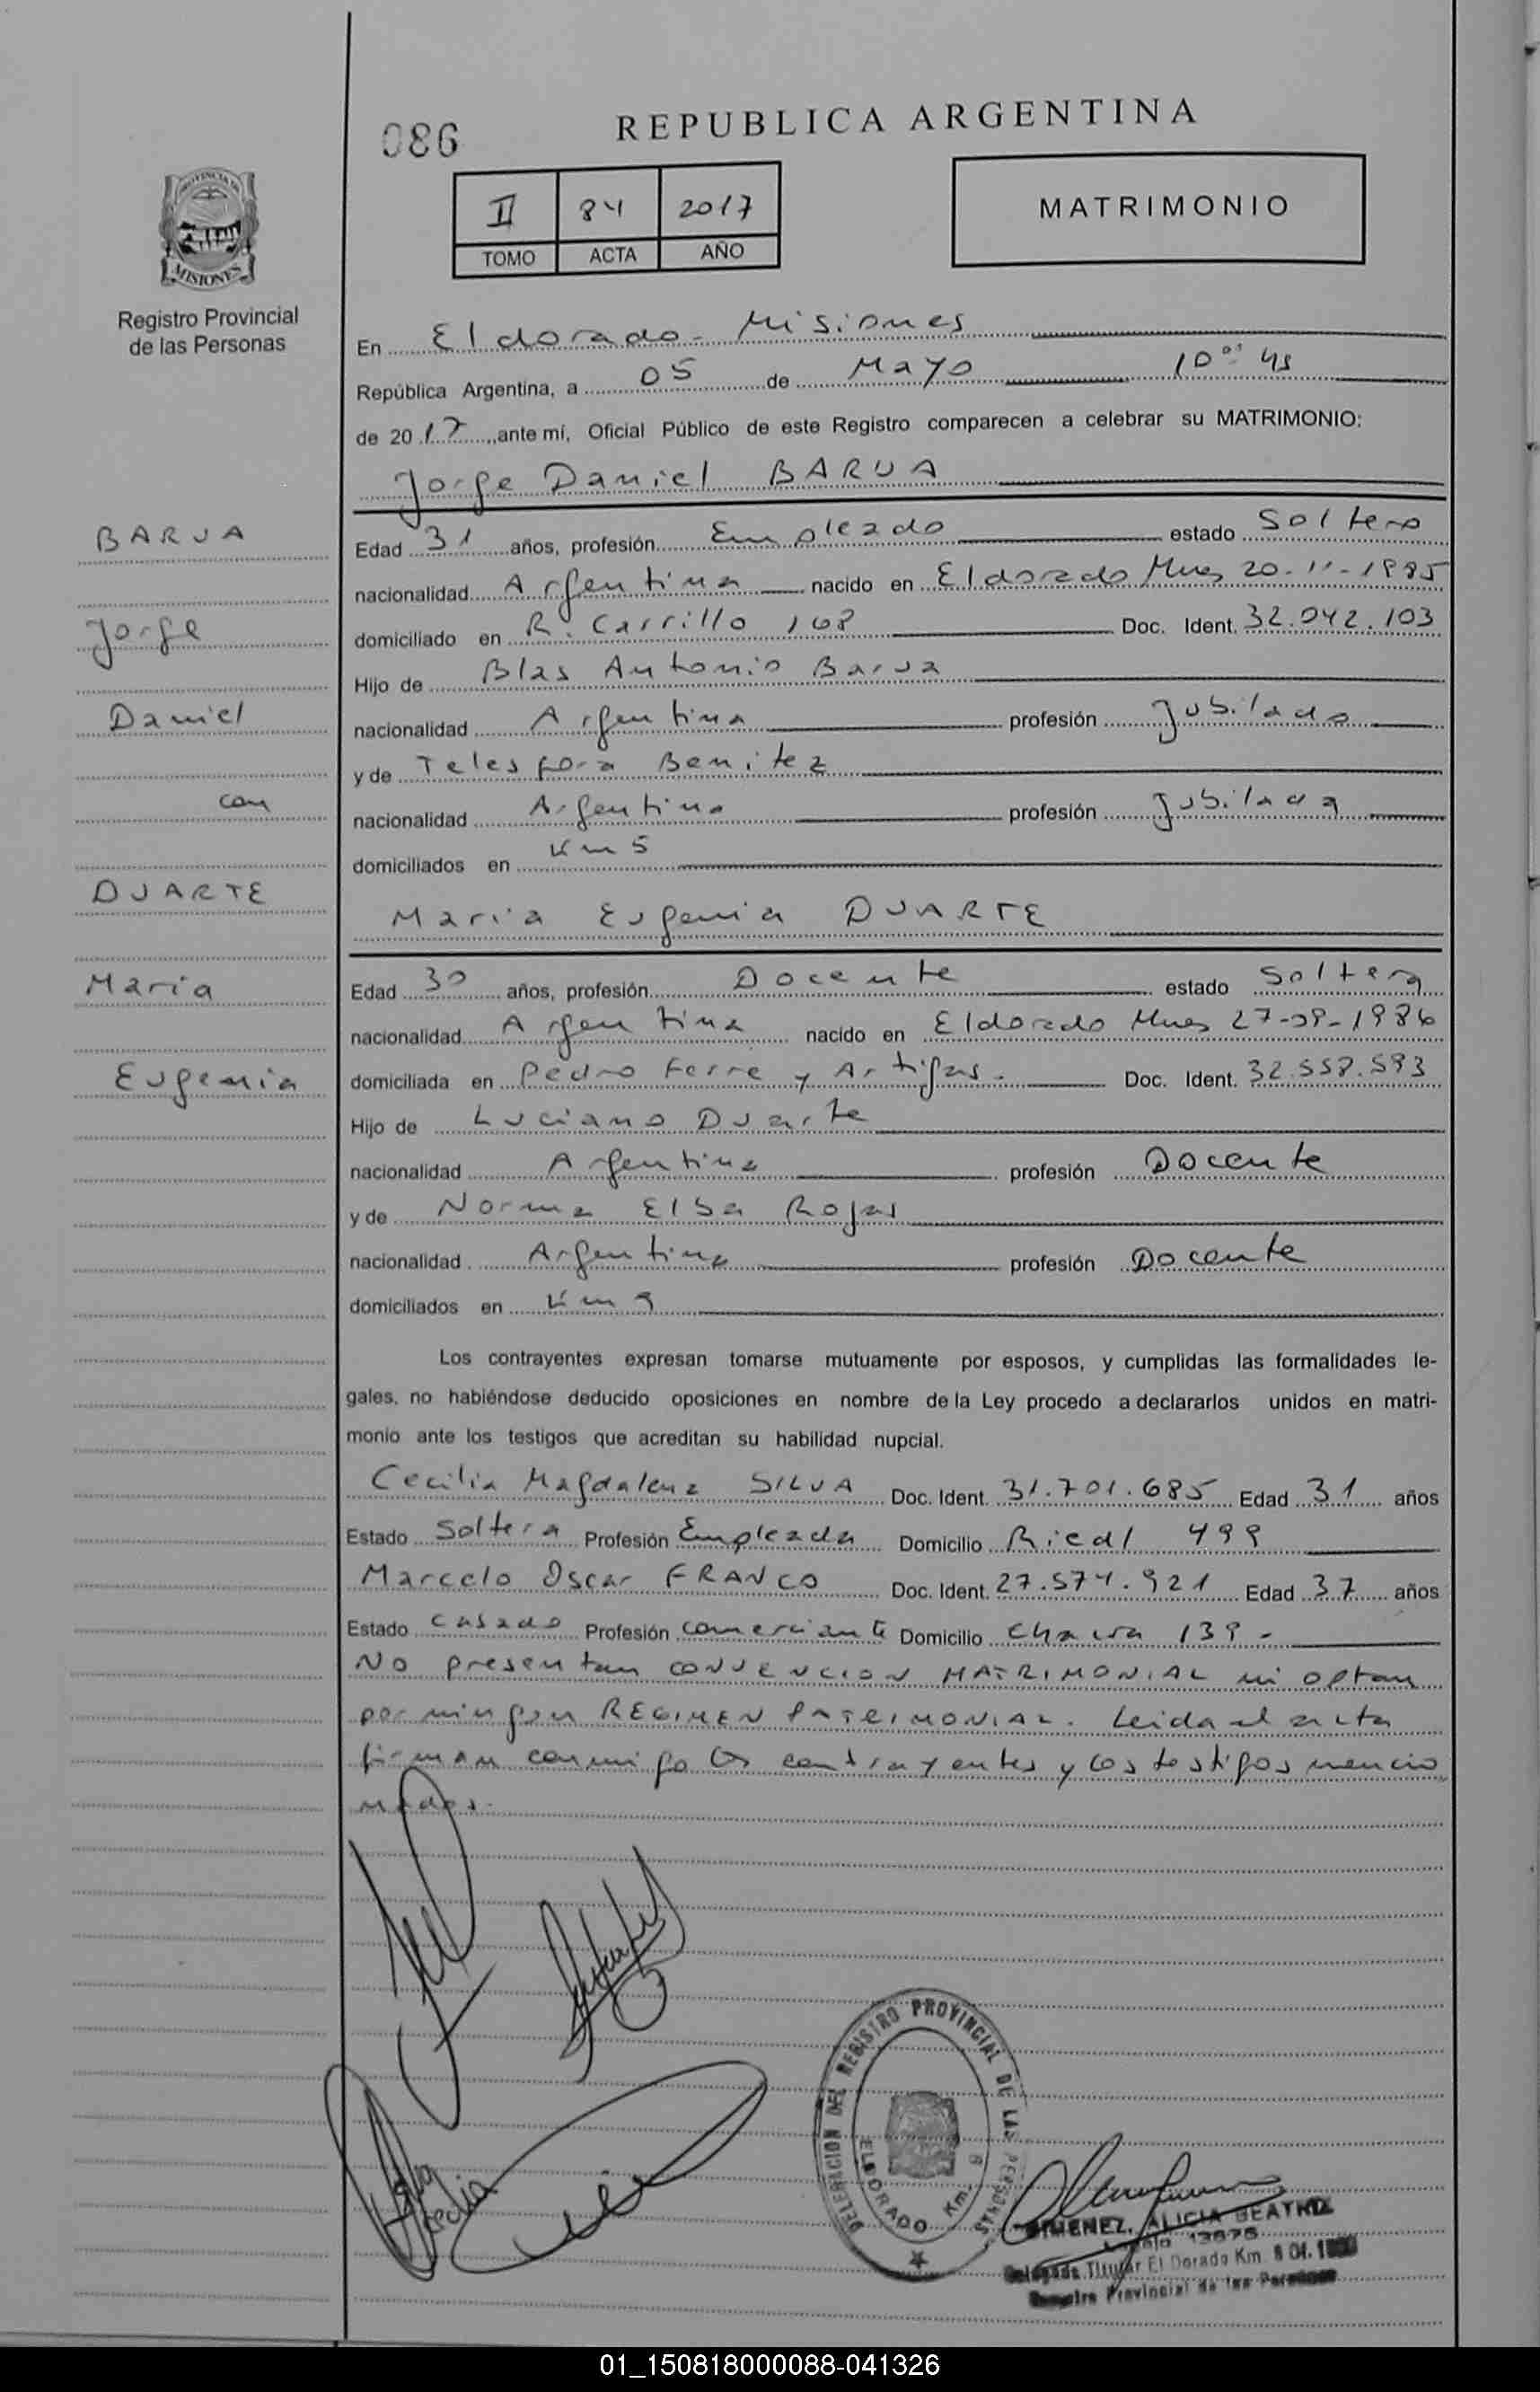 086
REPUBLICA ARGENTINA
PROVINCIA DE
MISIONES
Registro Provincial
de las Personas
II 84 2017
TOMO ACTA AÑO
MATRIMONIO
En Eldorado - Misiones
República Argentina, a 05 de Mayo 10°° hs
de 2017 ante mí, Oficial Público de este Registro comparecen a celebrar su MATRIMONIO:
Jorge Daniel BARUA
BARUA
Jorge
Daniel
con
DUARTE
Maria
Eugenia
Edad 31 años, profesión Empleado estado Soltero
nacionalidad Argentina nacido en Eldorado Mnes 20-11-1985
domiciliado en R. Carrillo 168 Doc. Ident. 32.042.103
Hijo de Blas Antonio Barua
nacionalidad Argentina profesión Jubilado
y de Telesfora Benitez
nacionalidad Argentina profesión Jubilada
domiciliados en Km 5
Maria Eugenia DUARTE
Edad 30 años, profesión Docente estado Soltera
nacionalidad Argentina nacido en Eldorado Mnes 27-09-1986
domiciliada en Pedro Ferre y Artigas. Doc. Ident. 32.558.593
Hijo de Luciano Duarte
nacionalidad Argentina profesión Docente
y de Norma Elba Rojas
nacionalidad Argentina profesión Docente
domiciliados en Km 9
Los contrayentes expresan tomarse mutuamente por esposos, y cumplidas las formalidades le-
gales, no habiéndose deducido oposiciones en nombre de la Ley procedo a declararlos unidos en matri-
monio ante los testigos que acreditan su habilidad nupcial.
Cecilia Magdalena SILVA Doc. Ident. 31.701.685 Edad 31 años
Estado Soltera Profesión Empleada Domicilio Riedl 499
Marcelo Oscar FRANCO Doc. Ident. 27.574.921 Edad 37 años
Estado casado Profesión comerciante Domicilio chacra 139 -
No presentan CONVENCION MATRIMONIAL ni optan
por ningun REGIMEN PATRIMONIAL. Leida el acta
firman conmigo los contrayentes y los testigos mencio
nados.
DELEGACION DEL REGISTRO PROVINCIAL DE LAS PERSONAS
ELDORADO Km.
GIMENEZ, ALICIA BEATRIZ
Delegada Titular El Dorado Km.
Registro Provincial de las Personas
01_150818000088-041326